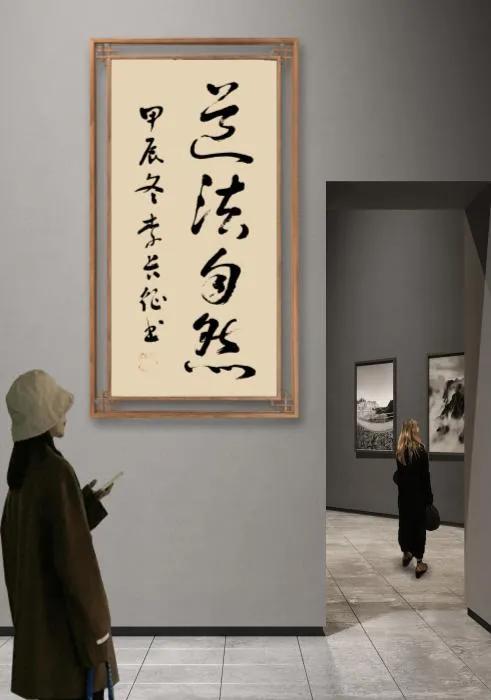 道法自然
甲辰冬李长征书